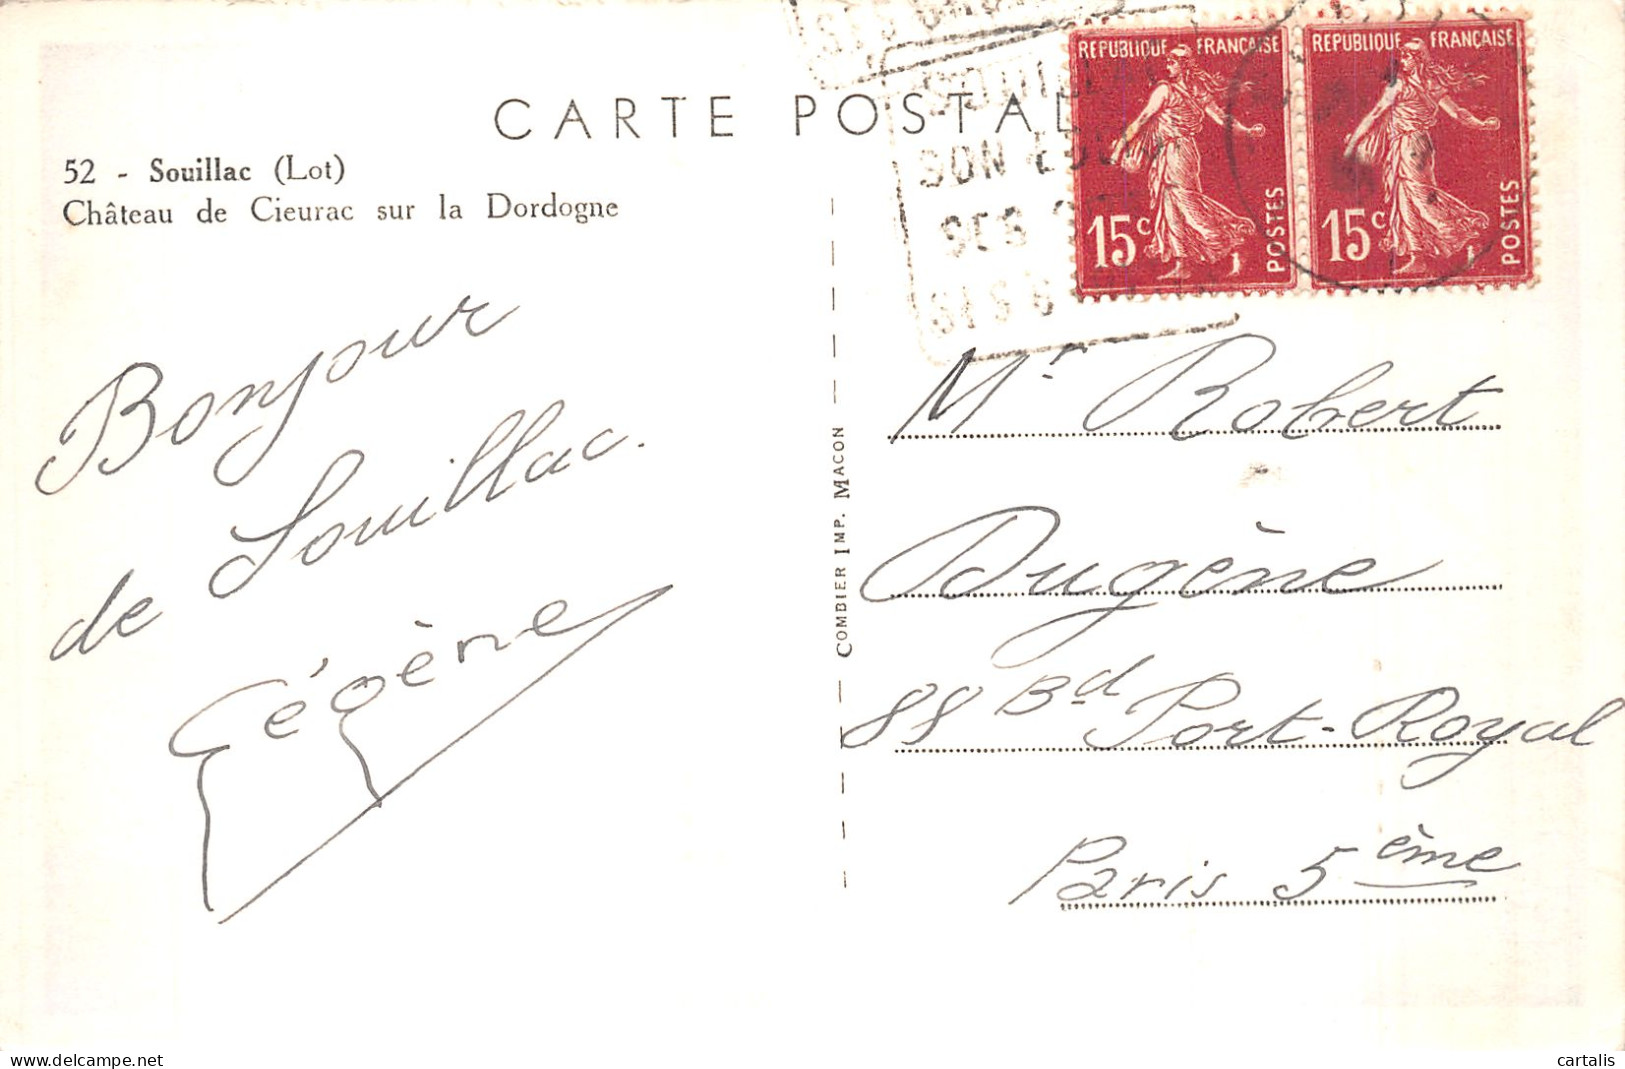 CARTE POSTAL
52 - Souillac (Lot)
Château de Cieurac sur la Dordogne
SON
SES
SES
RÉPUBLIQUE FRANÇAISE
15c
POSTES
RÉPUBLIQUE FRANÇAISE
15c
POSTES
Bonjour
de Souillac.
Gégène
COMBIER IMP. MACON
Mr Robert
Dugène
88 Bd Port-Royal
Paris 5ème
cartalis